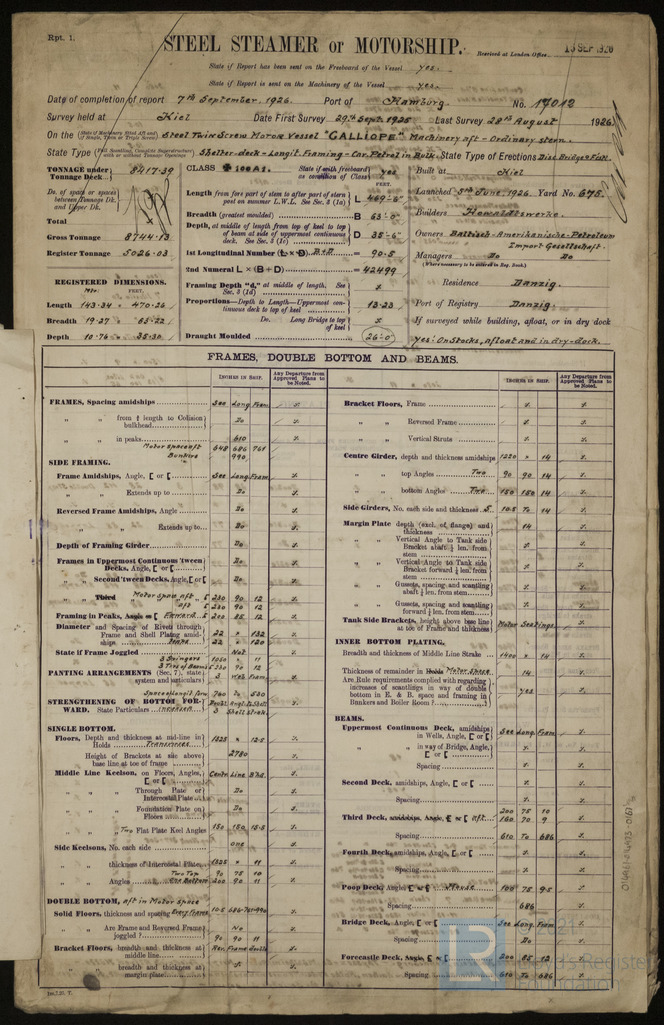 Rpt. 1.
STEEL STEAMER or MOTORSHIP.
Received at London Office
SEP 1926
State if Report has been sent on the Freeboard of the Vessel yes.
State if Report is sent on the Machinery of the Vessel yes.
Date of completion of report 7th September, 1926. Port of Hamburg No. 17012
Survey held at Kiel Date First Survey 29th Sept. 1925 Last Survey 28th August 1926
On the Steel Twin Screw Motor Vessel "CALLIOPE" Machinery aft - Ordinary stern.
State Type Shelter-deck - Longit. Framing - Car. Petrol in Bulk. State Type of Erections
TONNAGE under Tonnage Deck 8417.39
Total
Gross Tonnage 8744.13
Register Tonnage 5026.03
REGISTERED DIMENSIONS.
FEET.
Length 143.34 = 470.26
Breadth 19.27 = 63.22
Depth 10.76 = 35.30
CLASS 100A1. State if with freeboard as condition of Class yes
FEET.
Length from fore part of stem to after part of stern post on summer L.W.L. See Sec. 3 (1a) L 469'-6"
Breadth (greatest moulded) B 63'-0"
Depth, at middle of length from top of keel to top of beam at side of uppermost continuous deck. See Sec. 3 (1c) D 35'-6"
1st Longitudinal Number B+D = 90.5
2nd Numeral L × (B + D) = 42499
Framing Depth "d," at middle of length. See Sec. 3 (1d)
Proportions—Depth to Length—Uppermost continuous deck to top of keel 13.23
Do. Long Bridge to top of keel
Draught Moulded 26'-0"
Built at Kiel
Launched 5th June, 1926 Yard No 675.
Builders Howaldtswerke.
Owners Baltisch-Amerikanische-Petroleum
Import Gesellschaft.
Managers Do Do
(Where necessary to be entered in Reg. Book.)
Residence Danzig.
Port of Registry Danzig.
If surveyed while building, afloat, or in dry dock
yes: On Stocks, afloat and in dry-dock.
FRAMES, DOUBLE BOTTOM AND BEAMS.
INCHES IN SHIP.
Any Departure from Approved Plans to be Noted.
INCHES IN SHIP.
Any Departure from Approved Plans to be Noted.
FRAMES, Spacing amidships See Long. Fram.
" " from ⅕ length to Collision bulkhead Do
" " in peaks 610
Motor space aft 648 686 761
Bunkers 990
SIDE FRAMING.
Frame Amidships, Angle, [ or [ See Long. Fram
" " Extends up to Do
Reversed Frame Amidships, Angle Do
" " Extends up to Do
Depth of Framing Girder Do
Frames in Uppermost Continuous 'tween Decks, Angle, [ or [ Do
" " Second 'tween Decks, Angle, [ or [ Do
" " Third Motor space aft 230 90 12
aft 230 90 12
Framing in Peaks, Angle or [ Forward 200 85 12
Diameter and Spacing of Rivets through Frame and Shell Plating amidships 22 × 132
22 × 120
State if Frame Joggled Not
PANTING ARRANGEMENTS (Sec. 7), state system and particulars
STRENGTHENING OF BOTTOM FORWARD. State Particulars
SINGLE BOTTOM.
Floors, Depth and thickness at mid-line in Holds Transverses 1325 × 12.5
Height of Brackets at side above base line at toe of frame 2780
Middle Line Keelson, on Floors, Angles, [ or [ Centre Line Bhd.
" " Through Plate or Intercostal Plate Do
" " Foundation Plate on Floors Do
" " Two Flat Plate Keel Angles 150 150 15.5
Side Keelsons, No. each side one
" " thickness of Intercostal Plate 1325 × 11
" " Angles Two Top 90 75 10
One Bottom 200 90 11
DOUBLE BOTTOM, aft in Motor space
Solid Floors, thickness and spacing Every frame 10.5 686-761-990
" Are Frame and Reversed Frame joggled? No
Bracket Floors, breadth and thickness at middle line
" " breadth and thickness at margin plate
Bracket Floors, Frame
" " Reversed Frame
" " Vertical Struts
Centre Girder, depth and thickness amidships 1220 × 14
" " top Angles Two 90 90 14
" " bottom Angles Two 150 150 14
Side Girders, No. each side and thickness 5 10.5 To 14
Margin Plate depth (excl. of flange) and thickness 14
" " Vertical Angle to Tank side Bracket abaft ¼ len. from stem
" " Vertical Angle to Tank side Bracket forward ¼ len. from stem
" " Gussets, spacing and scantling abaft ¼ len. from stem
" " Gussets, spacing and scantling forward ¼ len. from stem
Tank Side Brackets, height above base line at toe of Frame and thickness Motor Seatings
INNER BOTTOM PLATING.
Breadth and thickness of Middle Line Strake 1400 × 14
Thickness of remainder in Holds Motor space 14
Are Rule requirements complied with regarding increases of scantlings in way of double bottom in E. & B. space and framing in Bunkers and Boiler Room? yes
BEAMS.
Uppermost Continuous Deck, amidships in Wells, Angle, [ or [ See Long. Fram.
" " in way of Bridge, Angle, [ or [
Spacing
Second Deck, amidships, Angle, [ or [
Spacing
Third Deck, amidships, Angle, [ or [ aft. 200 75 10
160 70 9
Spacing 610 To 686
Fourth Deck, amidships, Angle, [ or [
Spacing
Poop Deck, Angle [ or [ 100 75 9.5
Spacing 686
Bridge Deck, Angle, [ or [ See Long. Fram.
Spacing Do
Forecastle Deck, Angle, [ or [ 200 85 12
Spacing 610 To 686
2021
Lloyd's Register
Foundation